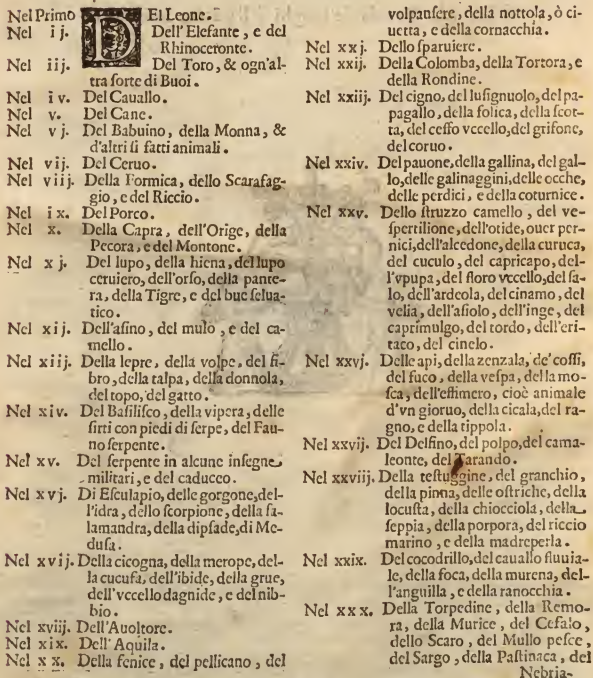 Nel Primo DEl Leone.
Nel ij. Dell'Elefante, e del
Rhinoceronte.
Nel iij. Del Toro, & ogn'al-
tra sorte di Buoi.
Nel iv. Del Cauallo.
Nel v. Del Cane.
Nel vj. Del Babuino, della Monna, &
d'altri sì fatti animali.
Nel vij. Del Ceruo.
Nel viij. Della Formica, dello Scarafag-
gio, e del Riccio.
Nel ix. Del Porco.
Nel x. Della Capra, dell'Orige, della
Pecora, e del Montone.
Nel xj. Del lupo, della hiena, del lupo
ceruiero, dell'orso, della pante-
ra, della Tigre, e del bue selua-
tico.
Nel xij. Dell'asino, del mulo, e del ca-
mello.
Nel xiij. Della lepre, della volpe, del fi-
bro, della talpa, della donnola,
del topo, del gatto.
Nel xiv. Del Basilisco, della vipera, delle
sirti con piedi di serpe, del Fau-
no serpente.
Nel xv. Del serpente in alcune insegne
militari, e del caduceo.
Nel xvj. Di Esculapio, delle gorgone, del-
l'idra, dello scorpione, della sa-
lamandra, della dipsade, di Me-
dusa.
Nel xvij. Della cicogna, della merope, del-
la cucufa, dell'ibide, della grue,
dell'vccello dagnide, e del nib-
bio.
Nel xviij. Dell'Auoltore.
Nel xix. Dell'Aquila.
Nel xx. Della fenice, del pellicano, del
volpansere, della nottola, ò ci-
uetta, e della cornacchia.
Nel xxj. Dello sparuiere.
Nel xxij. Della Colomba, della Tortora, e
della Rondine.
Nel xxiij. Del cigno, del lusignuolo, del pa-
pagallo, della folica, della scot-
ta, del ceffo vccello, del grifone,
del coruo.
Nel xxiv. Del pauone, della gallina, del gal-
lo, delle galinaggini, delle ocche,
delle perdici, e della coturnice.
Nel xxv. Dello struzzo camello, del ve-
spertilione, dell'otide, ouer per-
nici, dell'alcedone, della curuca,
del cuculo, del capricapo, del-
l'vpupa, del floro vccello, del sa-
lo, dell'ardeola, del cinamo, del
velia, dell'asiolo, dell'inge, del
caprimulgo, del tordo, dell'eri-
taco, del cinclo.
Nel xxvj. Delle api, della zenzala, de' cossi,
del fuco, della vespa, della mo-
sca, dell'effimero, cioè animale
d'vn gioruo, della cicala, del ra-
gno, e della tippola.
Nel xxvij. Del Delfino, del polpo, del cama-
leonte, del Tarando.
Nel xxviij. Della testuggine, del granchio,
della pinna, delle ostriche, della
locusta, della chiocciola, della
seppia, della porpora, del riccio
marino, e della madreperla.
Nel xxix. Del cocodrillo, del cauallo fluuia-
le, della foca, della murena, del-
l'anguilla, e della ranocchia.
Nel xxx. Della Torpedine, della Remo-
ra, della Murice, del Cefalo,
dello Scaro, del Mullo pesce,
del Sargo, della Pastinaca, del
Nebria-